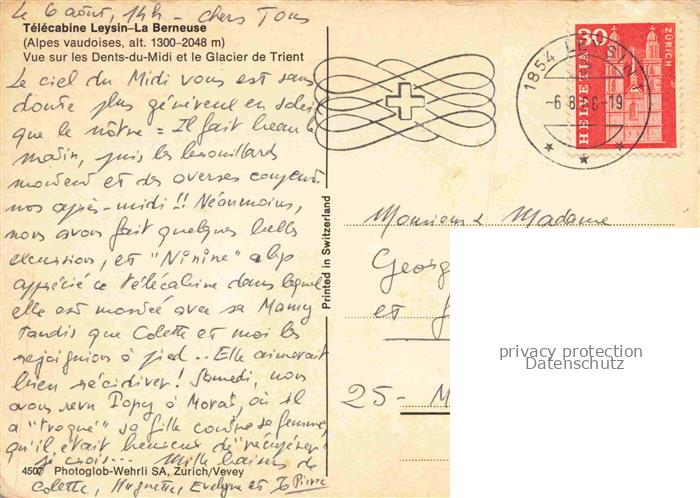 Le 6 août, 14h - Chers Tous
Télécabine Leysin-La Berneuse
(Alpes vaudoises, alt. 1300-2048 m)
Vue sur les Dents-du-Midi et le Glacier de Trient
Le ciel du Midi vous est sans
doute plus généreux en soleil
que le nôtre = Il fait beau le
matin, puis les brouillards
montent et des averses
nos après-midi !! Néanmoins,
nous avons fait quelques belles
excursion, et "Ninine" a bp
apprécié ce télécabine dans lequel
elle est montée avec sa Mamy
tandis que Colette et moi les
rejoignions à pied .. Elle aimerait
bien récidiver ! Samedi, nous
avons revu Papy à Morat, où il
a "troqué" sa fille contre sa femme,
qu'il était heureux de "récupérer"
je crois... Mille baisers de
4507 Photoglob-Wehrli SA, Zürich/Vevey
Colette, Huguette, Evelyne et Pierre
Printed in Switzerland
1854 LEYSIN
-6.8. 6-19
30
HELVETIA
ZÜRICH
Monsieur & Madame
Georg
et
25- M
privacy protection
Datenschutz